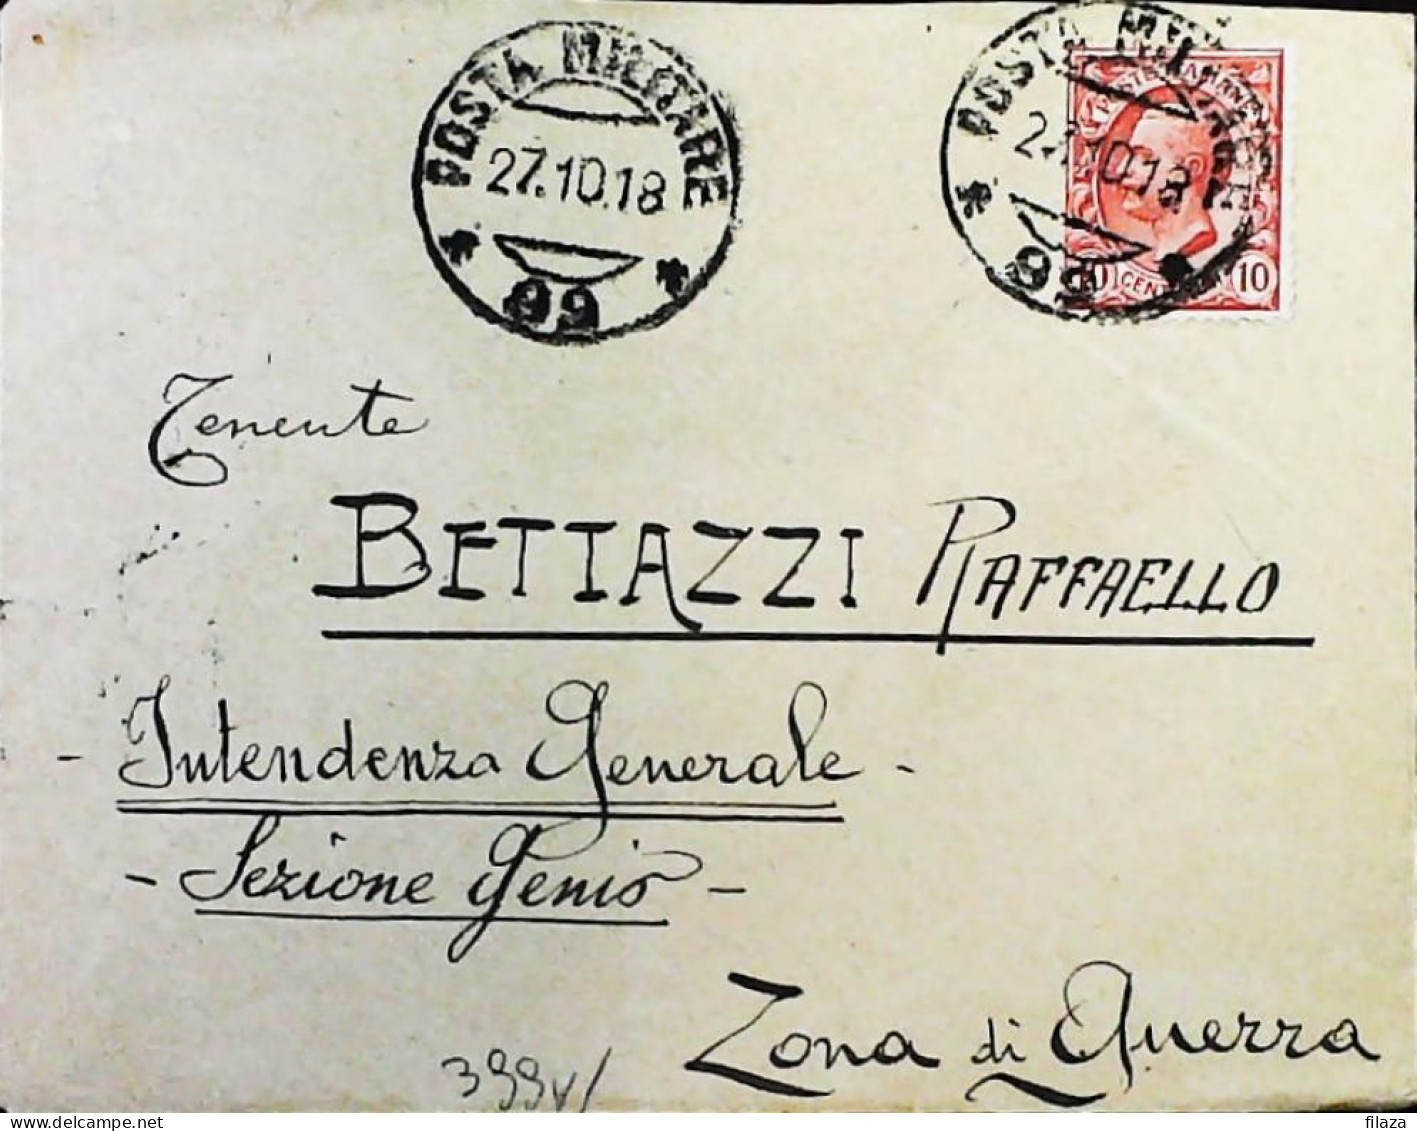 POSTA MILITARE
27.10.18
99
POSTA MILITARE
27.10.18
99
POSTE ITALIANE
10 CENTESIMI 10
Tenente
BETTAZZI RAFFAELLO
- Intendenza Generale -
- Sezione Genio -
Zona di Guerra
399
delcampe.net
filaza